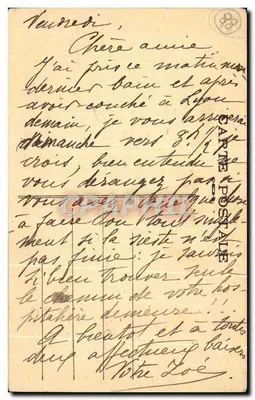 Vendredi,
Chère amie,
J'ai pris ce matin mon
dernier bain et après
avoir couché à Lyon
demain, je vous arriverai
dimanche vers 3h 1/2 je
crois, bien entendu ne
vous dérangez pas si
vous avez quelque chose
à faire ou tout simple-
ment si la sieste n'est
pas finie: je saurais
si bien trouver seule
le chemin de votre hos-
pitalière demeure!!!
A bientôt et à toutes
deux affectueux baisers
Votre Zoé
CARTE POSTALE